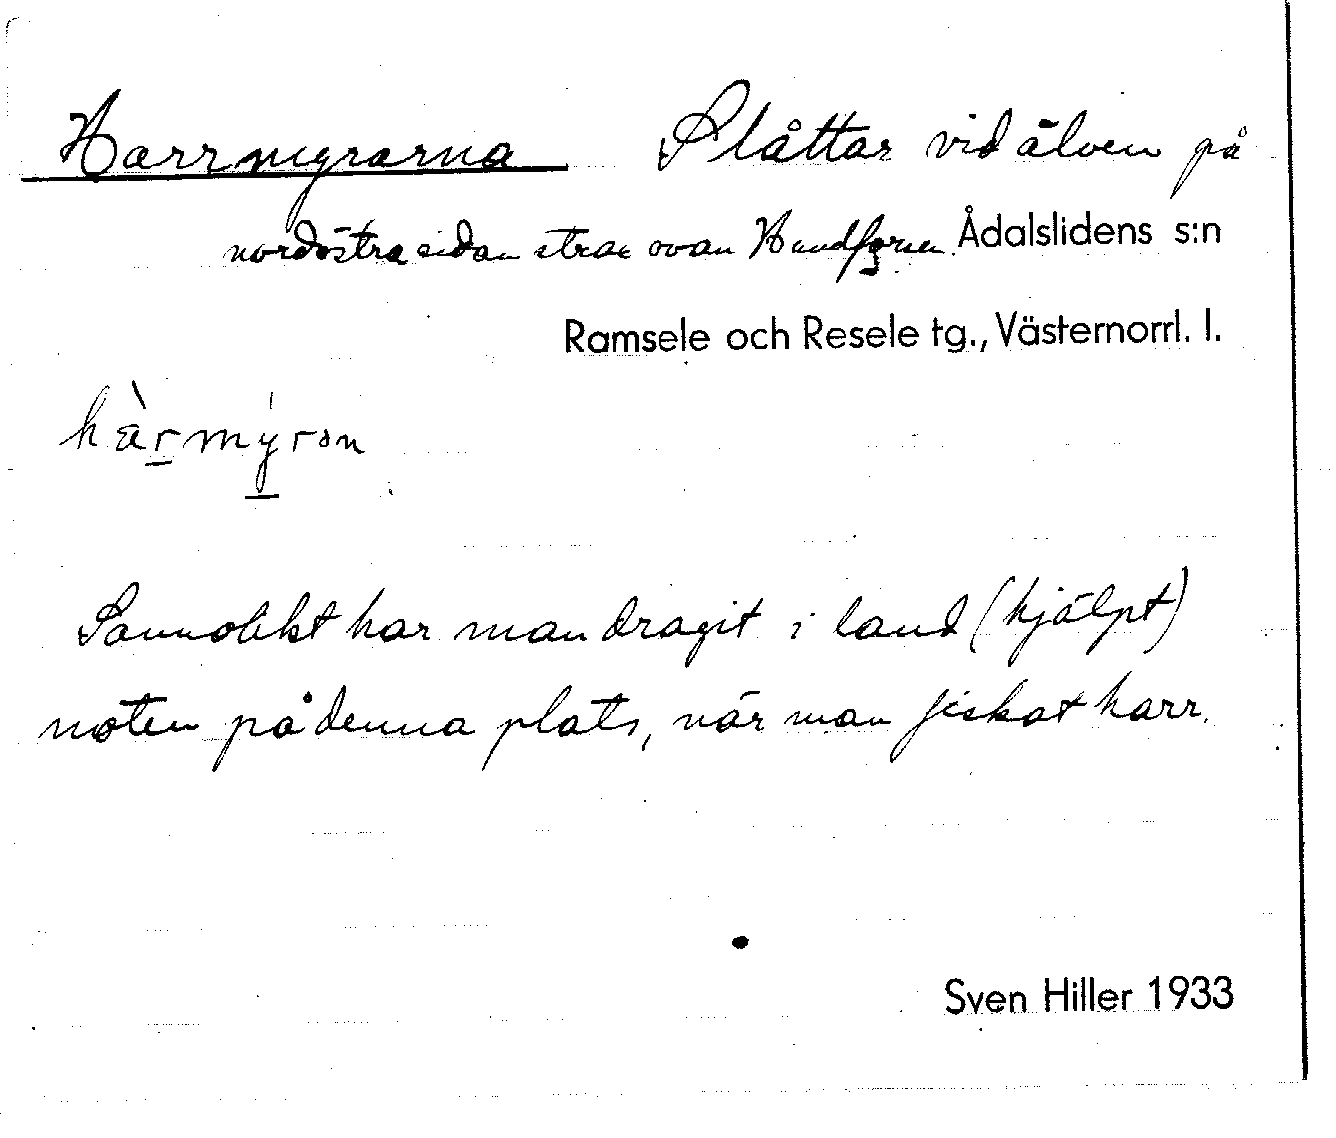 Harrmyrarna Slåttar vid älven på
nordöstra sidan strax ovan Ådalslidens s:n
Ramsele och Resele tg., Västernorrl. l.
hàrmýrọn
Sannolikt har man dragit i land (hjälpt)
noten på denna plats, när man fiskat harr.
Sven Hiller 1933